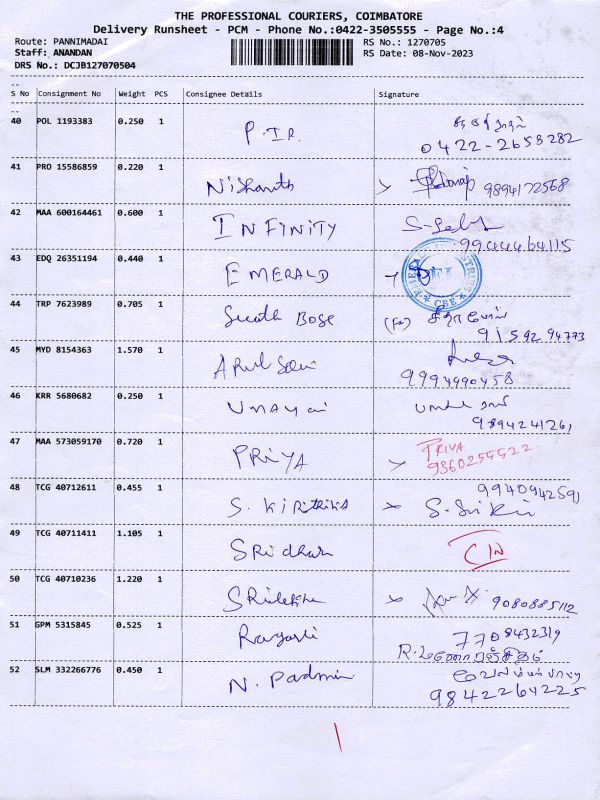 THE PROFESSIONAL COURIERS, COIMBATORE
Delivery Runsheet - PCM - Phone No.:0422-3505555 - Page No.:4
Route: PANNIMADAI RS No.: 1270705
Staff: ANANDAN RS Date: 08-Nov-2023
DRS No.: DCJB127070504
S No Consignment No Weight PCS Consignee Details Signature
40 POL 1193383 0.250 1 P.IR.
0422-2658282
41 PRO 15586859 0.220 1 Nishanth 9894172568
42 MAA 600164461 0.600 1 INFINITY
9944464115
43 EDQ 26351194 0.440 1 EMERALD
CBE
44 TRP 7623989 0.705 1 Bose
9159294773
45 MYD 8154363 1.570 1 Arul
9994990458
46 KRR 5680682 0.250 1 Umayai
9894241261
47 MAA 573059170 0.720 1 PRIYA PRIYA
9360255522
48 TCG 40712611 0.455 1 S. Kirithika
9940942591
49 TCG 40711411 1.105 1 SRidharn CIN
50 TCG 40710236 1.220 1 SRilekha 9080885112
51 GPM 5315845 0.525 1 7708432319
52 SLM 332266776 0.450 1 N. Padmini
9842264225